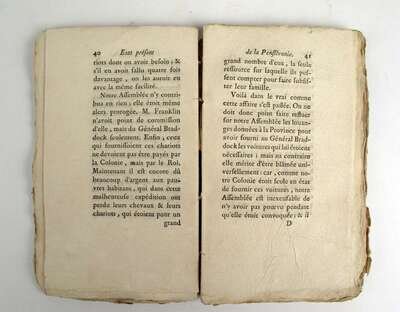 40 Etat présent
tiots dont on avoit besoin; &
s'il en avoit fallu quatre fois
davantage, on les auroit eu
avec la même facilité.
Notre Assemblée n'y contri-
bua en rien; elle étoit même
alors prorogée. M. Franklin
n'avoit point de commission
d'elle, mais du Général Brad-
dock seulement. Enfin, ceux
qui fournissoient ces chariots
ne devoient pas être payés par
la Colonie, mais par le Roi.
Maintenant il est encore dû
beaucoup d'argent aux pau-
vres habitans, qui dans cette
malheureuse expédition ont
perdu leurs chevaux & leurs
chariots, qui étoient pour un
grand
de la Pensilvanie. 41
grand nombre d'eux, la seule
ressource sur laquelle ils pus-
sent compter pour faire subsis-
ter leur famille.
Voilà dans le vrai comme
cette affaire s'est passée. On ne
doit donc point faire rester
sur notre Assemblée les louan-
ges données à la Province pour
avoir fourni au Général Brad-
dock les voitures qui lui étoient
nécessaires; mais au contraire
elle mérite d'être blâmée uni-
versellement: car, comme no-
tre Colonie étoit seule en état
de fournir ces voitures, notre
Assemblée est inexcusable de
n'y avoir pas pourvu pendant
qu'elle étoit convoquée: & il
D